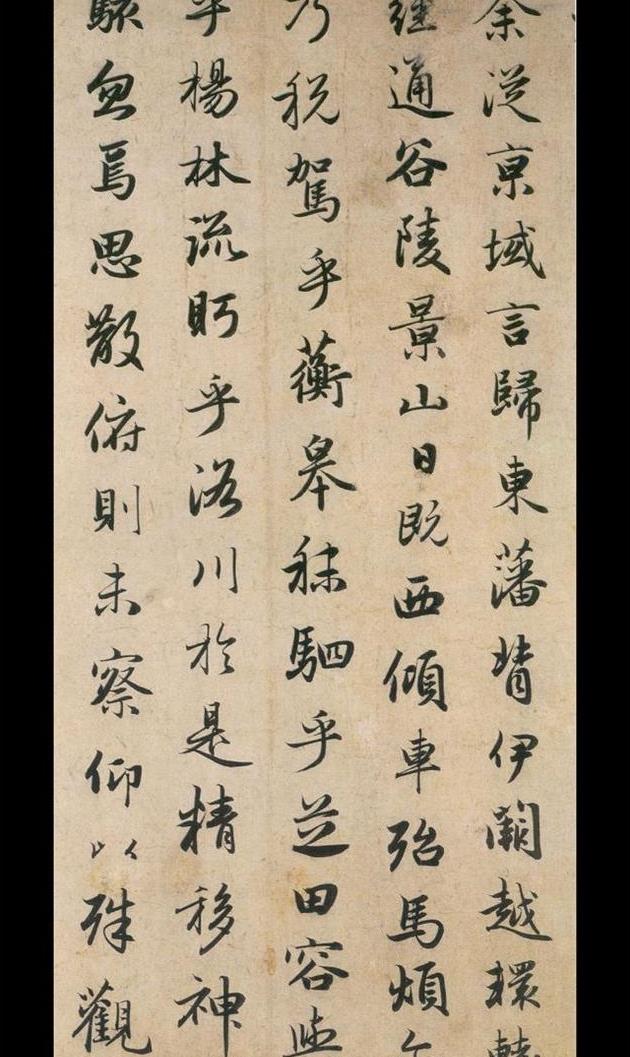 余從京域言歸東藩背伊闕越轘轅
經通谷陵景山日既西傾車殆馬煩
乃税駕乎蘅皋秣駟乎芝田容與
乎楊林流眄乎洛川於是精移神
駭忽焉思散俯則未察仰以殊觀